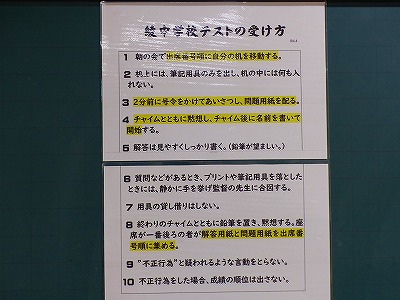 綾中学校テストの受け方
1 朝の会で出席番号順に自分の机を移動する。
2 机上には、筆記用具のみを出し、机の中には何も入
れない。
3 2分前に号令をかけてあいさつし、問題用紙を配る。
4 チャイムとともに黙想し、チャイム後に名前を書いて
開始する。
5 解答は見やすくしっかり書く。(鉛筆が望ましい。)
6 質問などがあるとき、プリントや筆記用具を落とした
ときには、静かに手を挙げ監督の先生に合図する。
7 用具の貸し借りはしない。
8 終わりのチャイムとともに鉛筆を置き、黙想する。座
席が一番後ろの者が解答用紙と問題用紙を出席番
号順に集める。
9 “不正行為”と疑われるような言動をとらない。
10 不正行為をした場合、成績の順位は出さない。